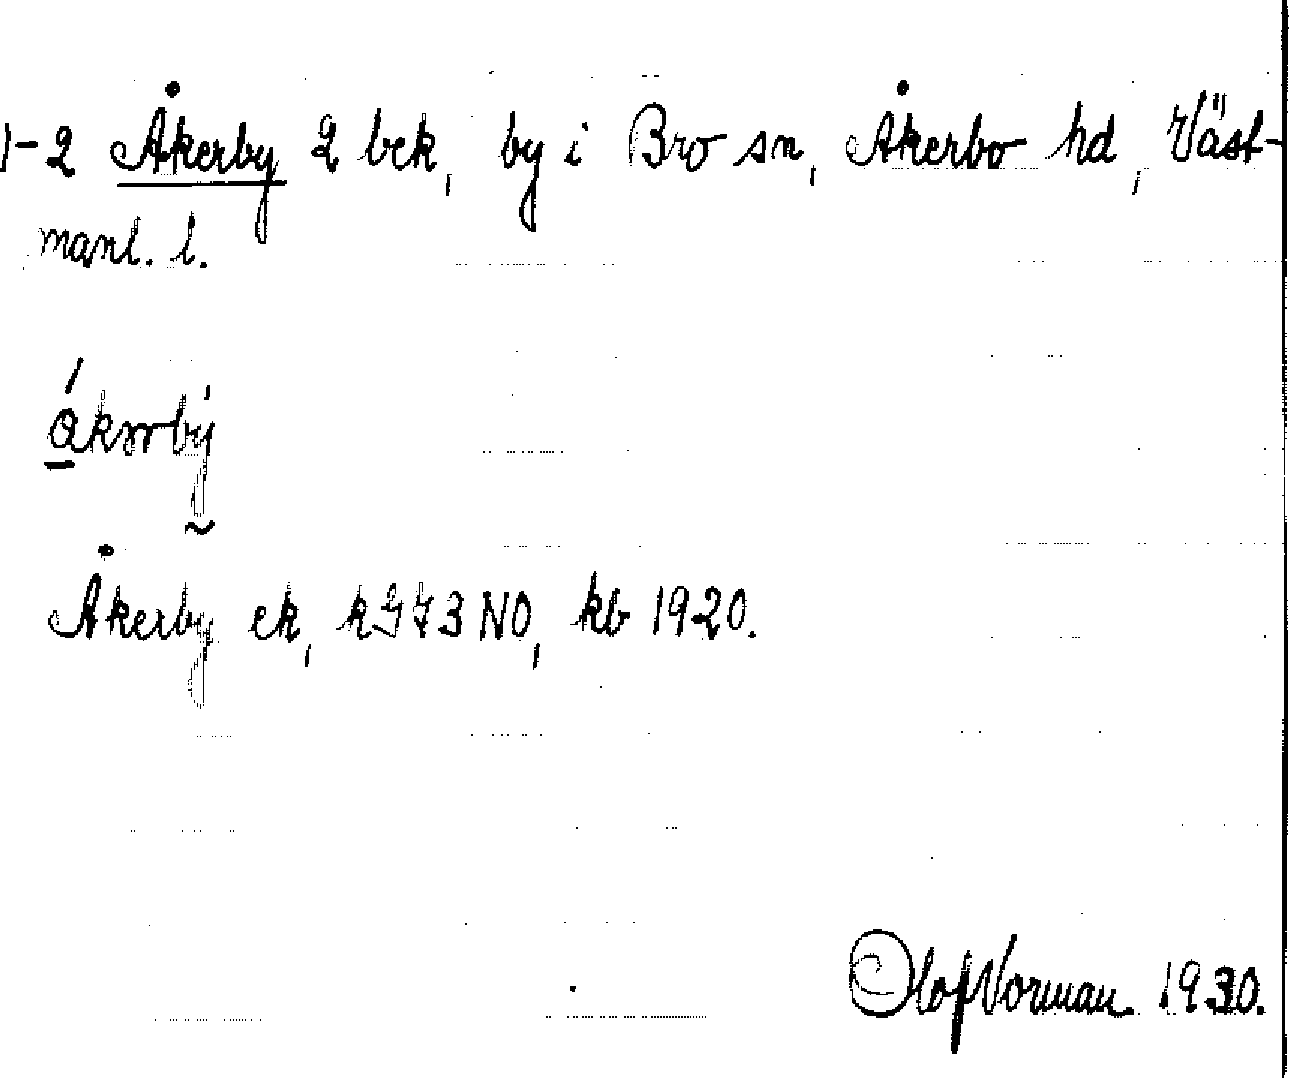 1-2 Åkerby 2 bek, by i Bro sn, Åkerbo hd,Väst-
manl. l.
Åkerby ek, k 773 NO, kb 1920.
Olof Vorman 1930.